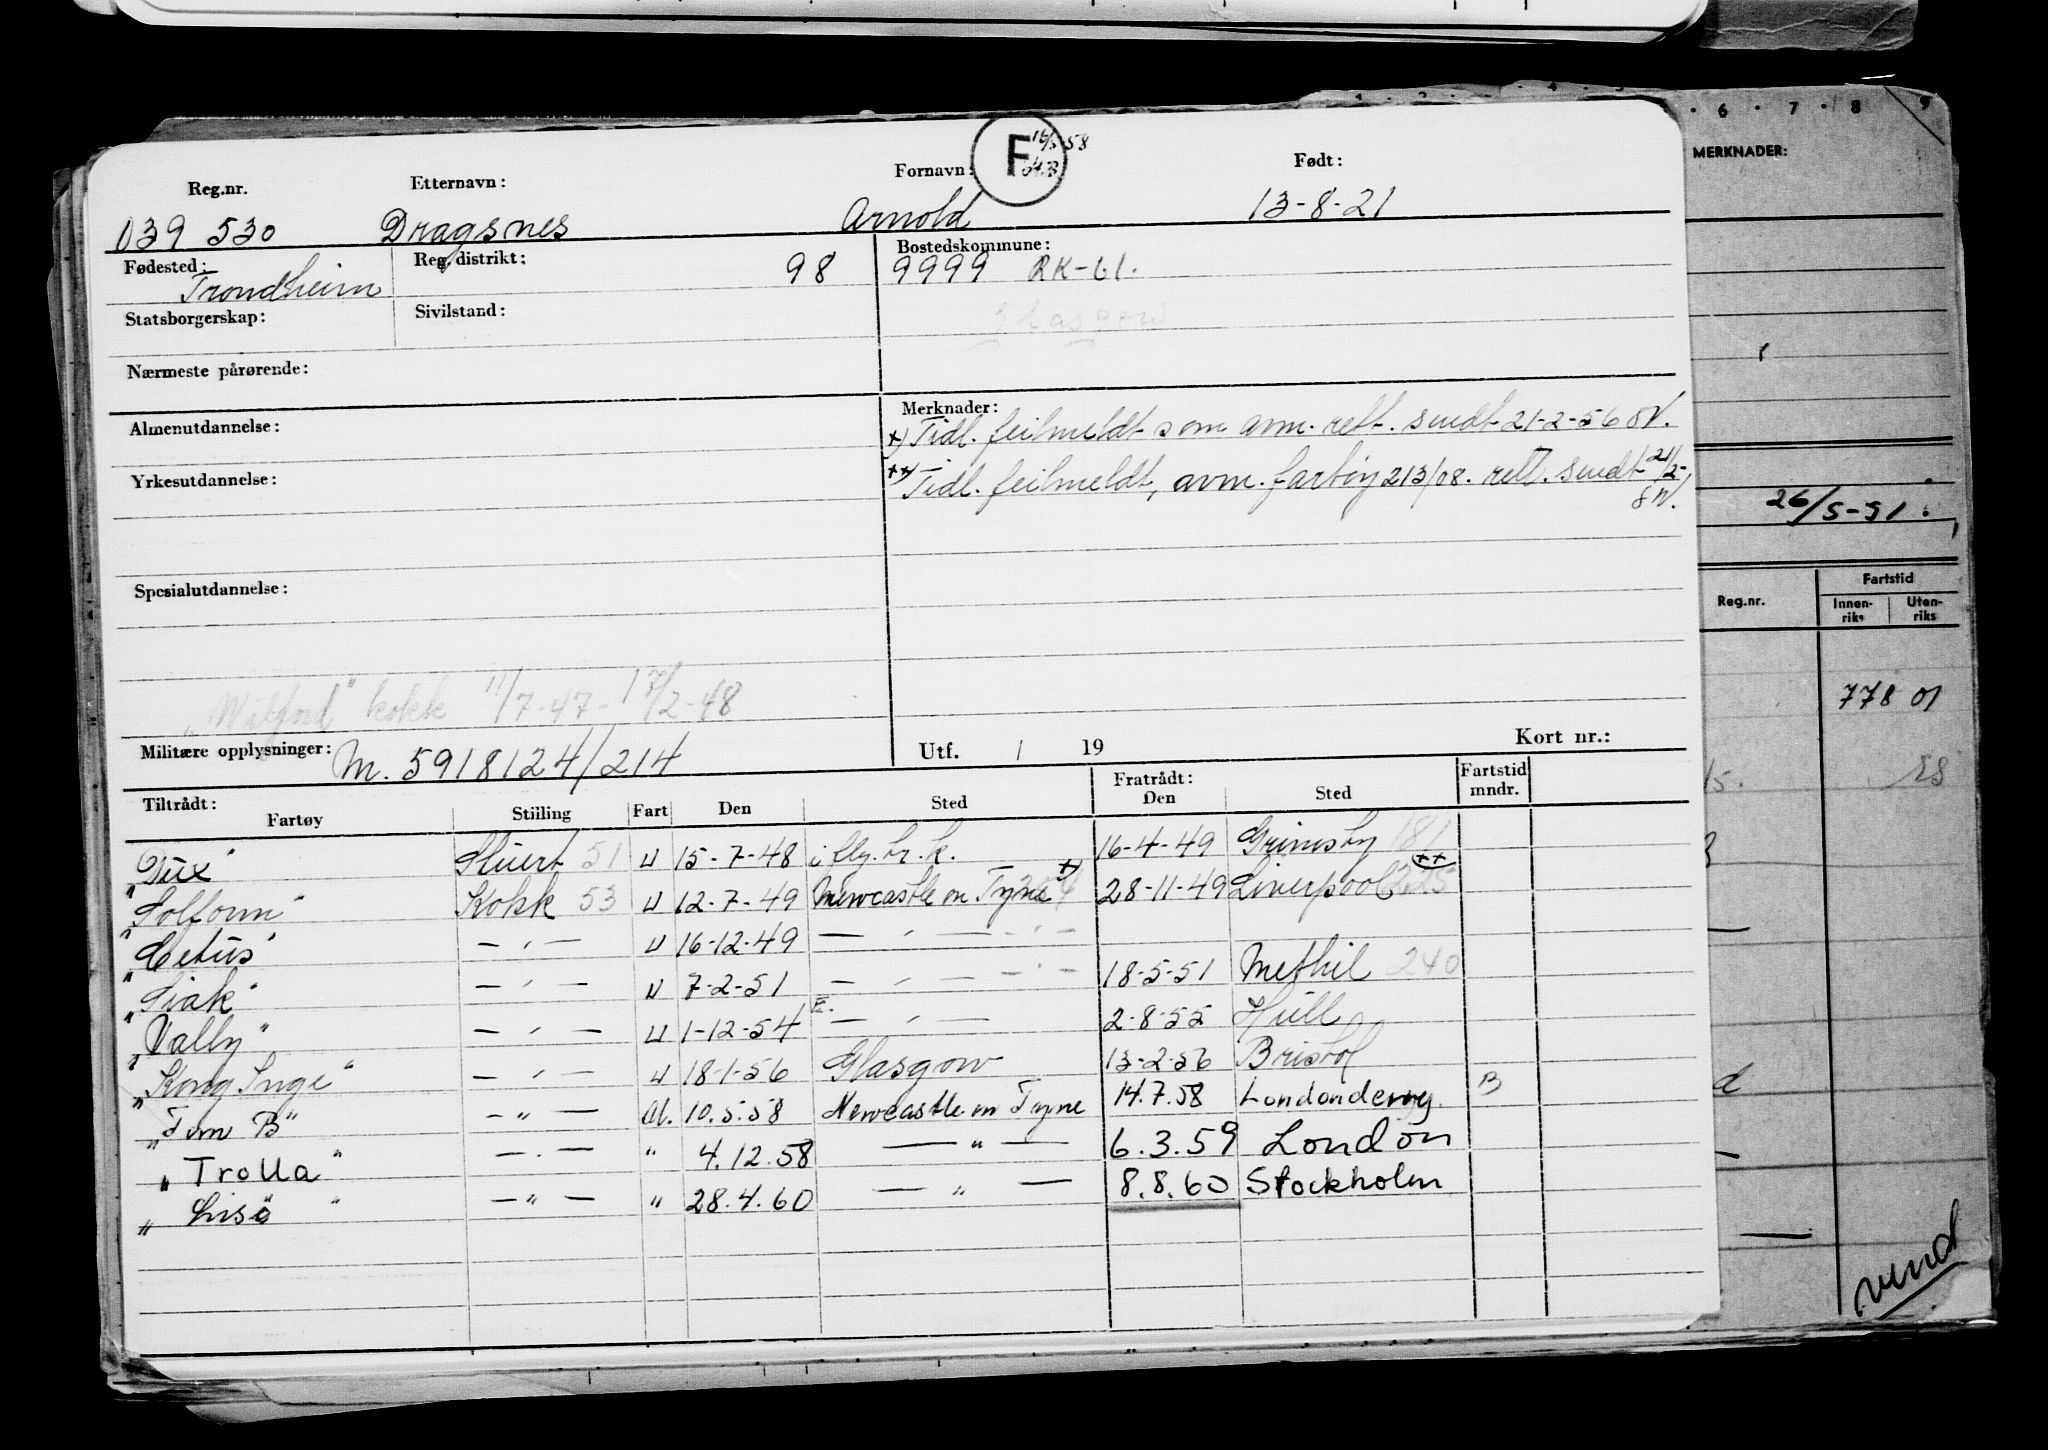 F 58
Reg.nr. Etternavn: Fornavn: Født:
039 530 Dragsnes Arnold 13-8-21
Fødested: Trondheim Reg. distrikt: 98 Bostedskommune: 9999 RK-61.
Statsborgerskap: Sivilstand: Glasgow
Nærmeste pårørende:
Almenutdannelse: Merknader:
x) Tidl. feilmeldt som avm. rett. sendt 21-2-56
Yrkesutdannelse: xx) Tidl. feilmeldt, avm. fartøy 213/08. rett. sendt 21/2-
Spesialutdannelse:
kokk 11/7-47- /2-48
Militære opplysninger: M. 5918124/214 Utf. / 19 Kort nr.:
Tiltrådt: Fratrådt: Fartstid
Fartøy Stiilling Fart Den Sted Den Sted mndr.
"Dux" Stuert 51 U 15-7-48 16-4-49 Grimsby 181
"Solfonn" Kokk 53 U 12-7-49 Newcastle on Tyne x) 28-11-49 Liverpool xx 225
"Cetus" — " — U 16-12-49 — " — — " —
"Siak" — " — U 7-2-51 — " — — " — 18-5-51 Methil 240
"Vally" — " — U 1-12-54 — " — 2-8-55 Hull
"Kong Inge" — " — U 18-1-56 Glasgow 13-2-56 Bristol
"Tom B" — " — 10.5.58 Newcastle on Tyne 14.7.58 Londonderry B
"Trolla" — " — " 4.12.58 — " — 6.3.59 London
"Lisö" — " — " 28.4.60 — " — 8.8.60 Stockholm
6 7 8 9
MERKNADER:
26/5-51.
Reg.nr. Fartstid
Innen-riks Uten-riks
778 01
vend